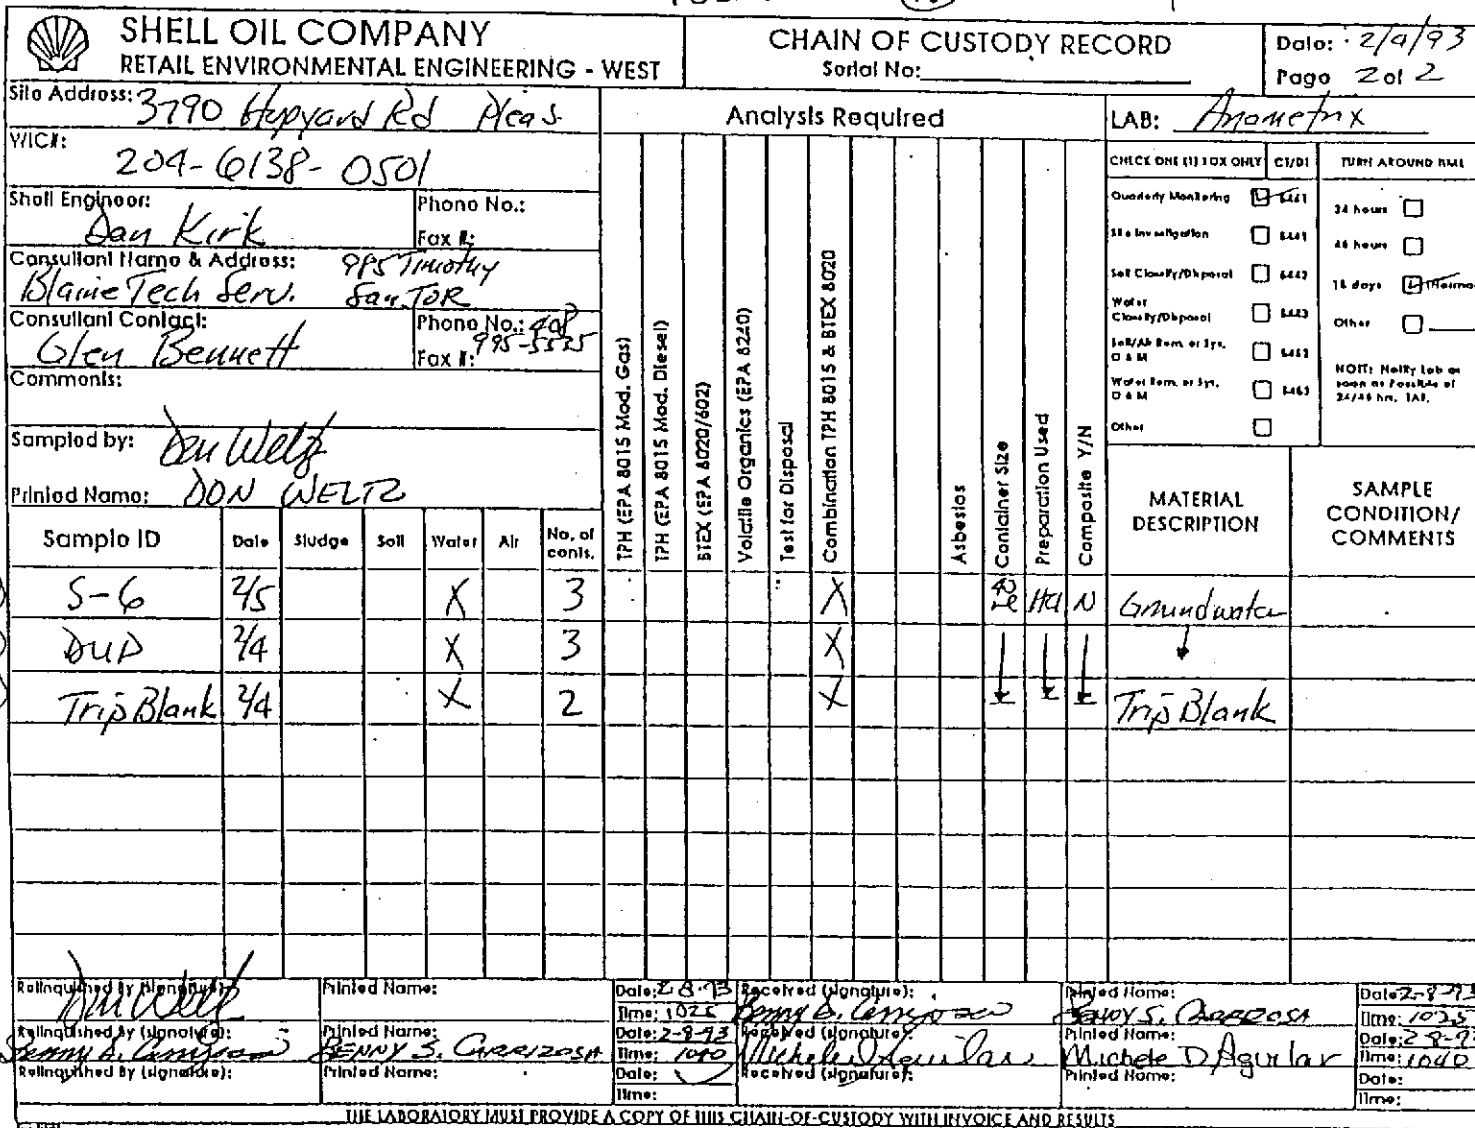 SHELL OIL COMPANY
RETAIL ENVIRONMENTAL ENGINEERING - WEST
CHAIN OF CUSTODY RECORD
Serial No:
Date: 2/4/93
Page 2 of 2
Site Address: 3790 Hopyard Rd Pleas.
WIC#: 204-6138-0501
Shell Engineer: Dan Kirk
Phone No.:
Fax #:
Consultant Name & Address: 985 Timothy
Blaine Tech Serv. San Jose
Consultant Contact: Glen Bennett
Phone No.: 408
995-5535
Fax #:
Comments:
Sampled by: Don Weltz
Printed Name: DON WELTZ
Analysis Required
LAB: Anametrix
CHECK ONE (1) BOX ONLY CT/DT TURN AROUND TIME
Quarterly Monitoring 6441
Site Investigation 6441
Soil Classify/Disposal 6442
Water Classify/Disposal 6443
Soil/Air Rem. or Sys. O & M 6452
Water Rem. or Sys. O & M 6453
Other
24 hours
48 hours
15 days (Normal
Other
NOTE: Notify Lab as soon as Possible of 24/48 hrs. TAT.
TPH (EPA 8015 Mod. Gas)
TPH (EPA 8015 Mod. Diesel)
BTEX (EPA 8020/602)
Volatile Organics (EPA 8240)
Test for Disposal
Combination TPH 8015 & BTEX 8020
Asbestos
Container Size
Preparation Used
Composite Y/N
MATERIAL DESCRIPTION
SAMPLE CONDITION/ COMMENTS
Sample ID Date Sludge Soil Water Air No. of conts.
S-6 2/5 X 3 X 40 HCl N Groundwater
DUP 2/4 X 3 X
Trip Blank 2/4 X 2 X Trip Blank
Relinquished By (signature): Don Weltz
Printed Name:
Date: 2-8-93
Time: 1025
Received (signature): Benny S. Carrizosa
Printed Name: BENNY S. CARRIZOSA
Date: 2-8-93
Time: 1025
Relinquished By (signature): Benny S. Carrizosa
Printed Name: BENNY S. CARRIZOSA
Date: 2-8-93
Time: 1040
Received (signature): Michele D Aguilar
Printed Name: Michele D Aguilar
Date: 2-8-93
Time: 1040
Relinquished By (signature):
Printed Name:
Date:
Time:
Received (signature):
Printed Name:
Date:
Time:
THE LABORATORY MUST PROVIDE A COPY OF THIS CHAIN-OF-CUSTODY WITH INVOICE AND RESULTS